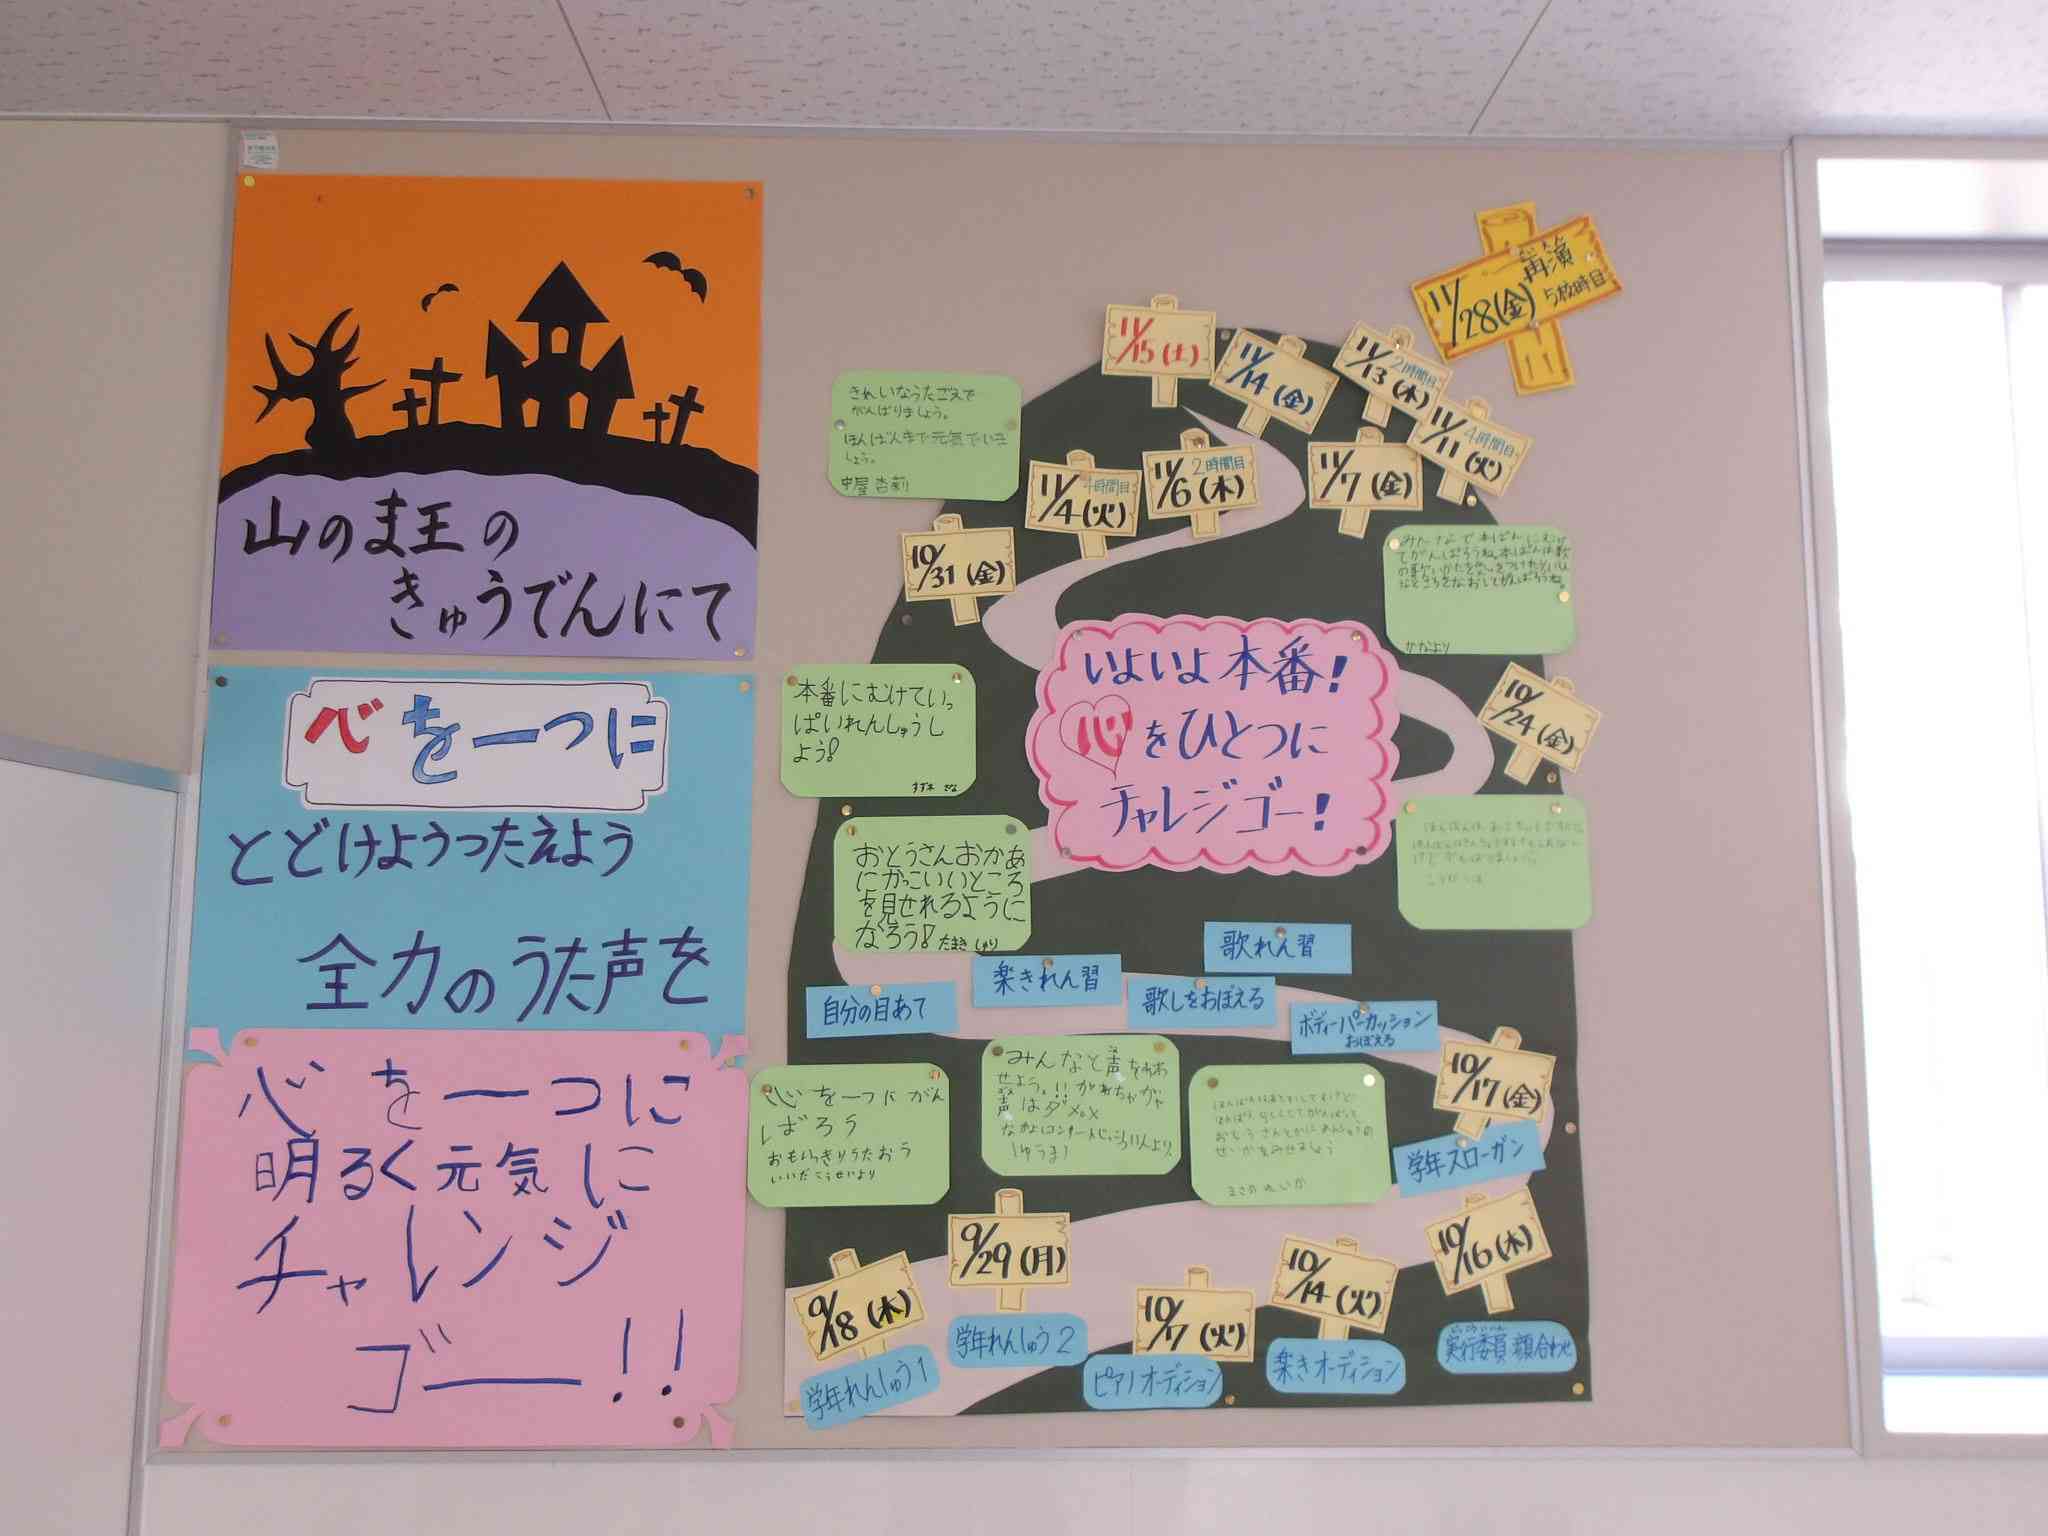 山のま王の
きゅうでんにて
心を一つに
とどけようつたえよう
全力のうた声を
心を一つに
明るく元気に
チャレンジ
ゴー!!
11/28(金)
再演
5校時目
11/15(土)
11/14(金)
11/13(木)
2時間目
11/11(火)
4時間目
11/7(金)
11/6(木)
2時間目
11/4(火)
4時間目
10/31(金)
きれいなうたごえで
がんばりましょう。
ほんばんまで元気でいき
しょう。
みんなで本ばんにむけ
てがんばろうね。本ばんは
かなより
いよいよ本番!
心をひとつに
チャレジゴー!
10/24(金)
本番にむけていっ
ぱいれんしゅうし
よう!
おとうさんおかあ
にかっこいいところ
を見せれるように
なろう!
たまき しゅり
自分の目あて
楽きれん習
歌れん習
歌しをおぼえる
ボディーパーカッション
おぼえる
10/17(金)
学年スローガン
心を一つにがん
ばろう
おもいっきりうたおう
いいだこうせいより
みんなと声を
せよう。!!
声はダメ。
(ゆうま)
おとうさんとかに
せいかをみせましょう
10/16(木)
実行委員 顔合わせ
10/14(火)
楽きオーディション
10/7(火)
ピアノオーディション
9/29(月)
学年れんしゅう2
9/18(木)
学年れんしゅう1